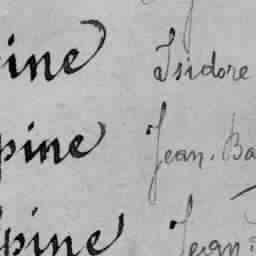 ine Isidore
pine Jean Ba
pine Jean